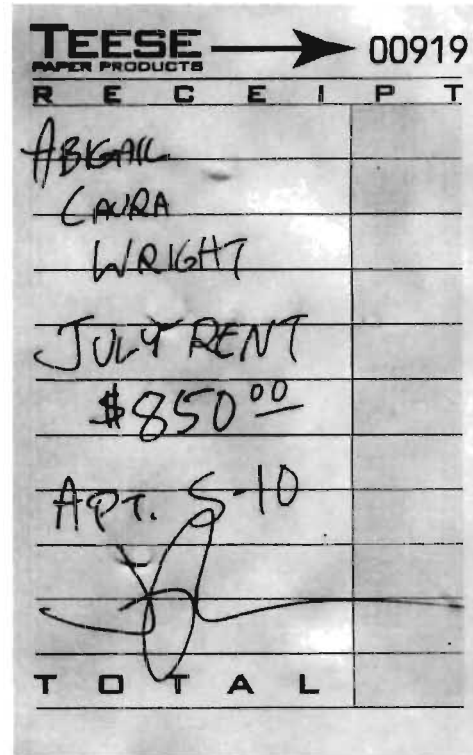 TEESE 00919
PAPER PRODUCTS
RECEIPT
ABIGAIL
LAURA
WRIGHT
JULY RENT
$850.00
APT. S-10
TOTAL